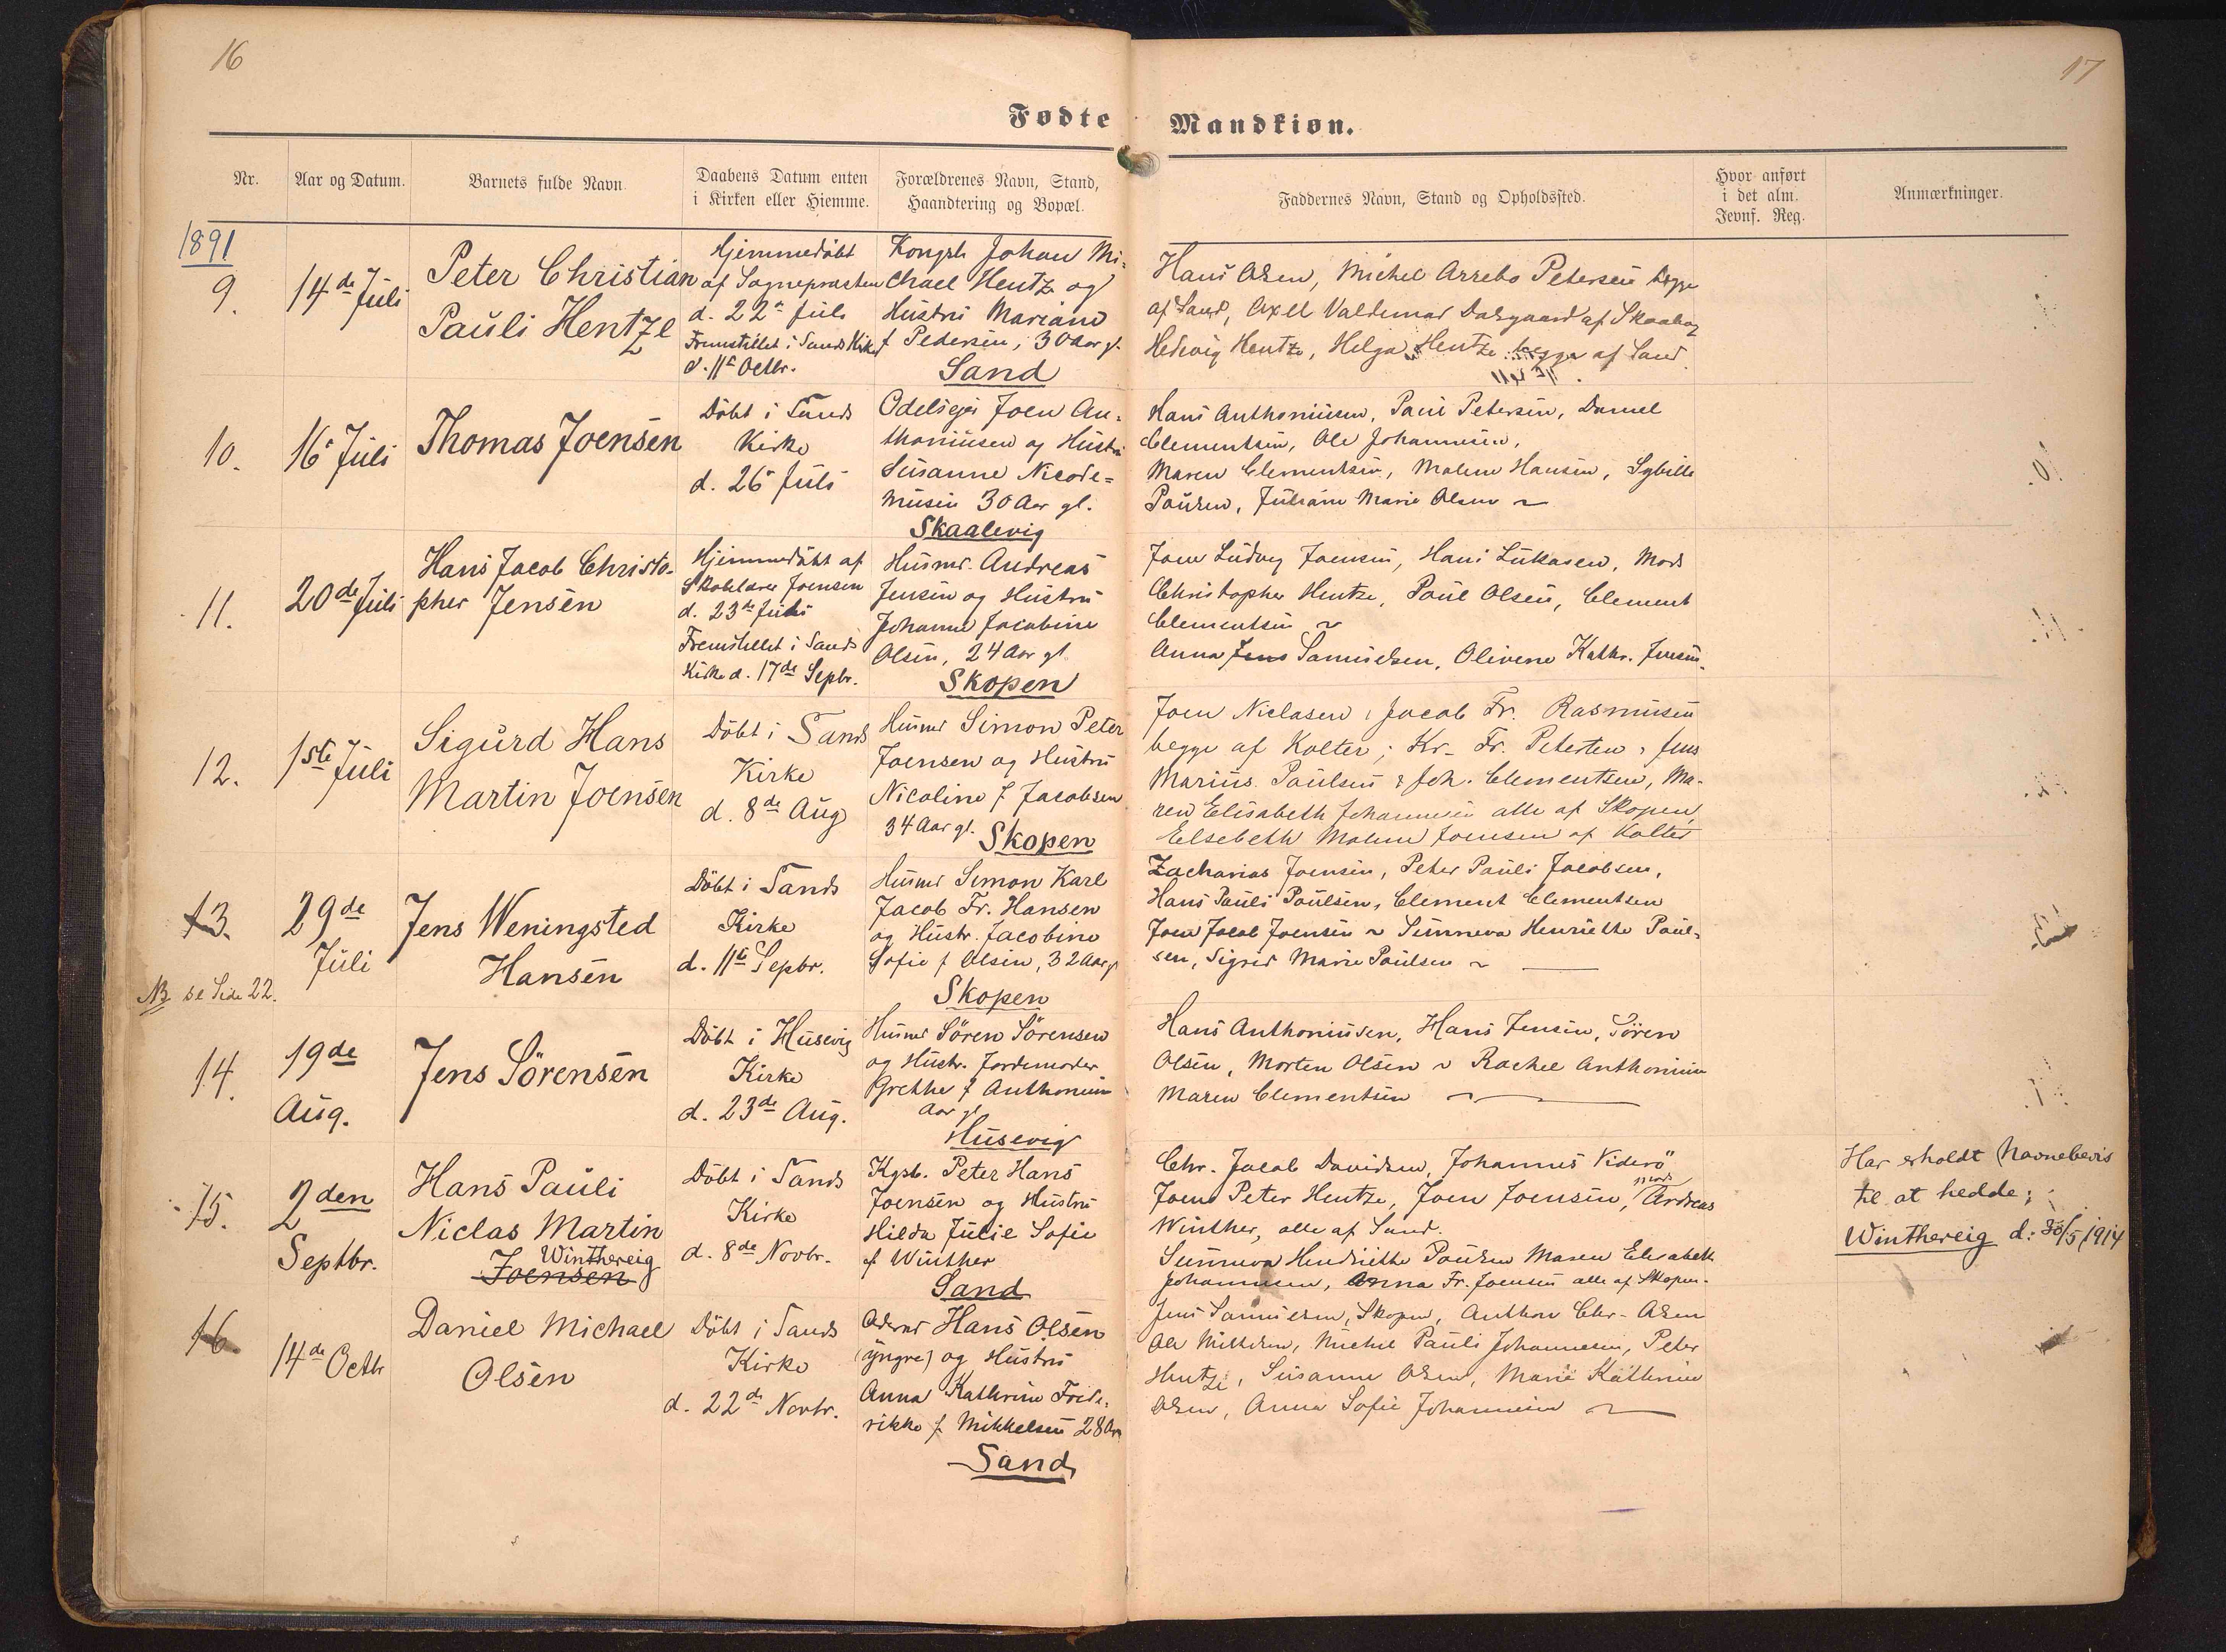 16
17
Fødte Mandkiøn.
Nr.
Aar og Datum.
Barnets fulde Navn.
Daabens Datum enten
i Kirken eller Hiemme.
Forældrenes Navn, Stand,
Haandtering og Bopæl.
Faddernes Navn, Stand og Opholdssted.
Hvor anført
i det alm.
Jevnf. Reg.
Anmærkninger.
1891
9.
14de Juli
Peter Christian
Pauli Hentze
Hjemmedöbt
af Sognepræsten
d. 22de Juli
Fremstillet i Sands Kirke
d. 11te Octbr.
Kongsb. Johan Mi-
chael Hentze og
Hustru Mariane
f Pedersen, 30 Aar gl.
Sand
Hans Olsen, Michel Arrebo Petersen begge
af Sand, Axel Valdemar Dalsgaard af Skaalevig
Hedevig Hentze, Helga Hentze begge af Sand.
10.
16de Juli
Thomas Joensen
Döbt i Sands
Kirke
d. 26de Juli
Odelsejer Joen An-
thoniusen og Hustru
Susanne Nicode-
musen 30 Aar gl.
Skaalevig
Hans Anthoniusen, Paul Petersen, Daniel
Clementsen, Ole Johannesen,
Maren Clementsen, Malene Hansen, Sybille
Poulsen, Juliane Marie Olsen ~
11.
20de Juli
Hans Jacob Christo-
pher Jensen
Hjemmedöbt af
Skolelærer Joensen
d. 23de Juli
Fremstillet i Sands
Kirke d. 17de Sepbr.
Husmd. Andreas
Jensen og Hustru
Johanne Jacobine
Olsen, 24 Aar gl.
Skopen
Joen Ludvig Joensen, Hans Lukasen, Mads
Christopher Hentze, Poul Olsen, Clement
Clementsen ~
Anna Jens Samuelsen, Olivene Kathr. Jensen.
12.
1ste Juli
Sigurd Hans
Martin Joensen
Döbt i Sands
Kirke
d. 8de Aug
Husmd Simon Peter
Joensen og Hustru
Nicoline f Jacobsen
34 Aar gl. Skopen
Joen Niclasen, Jacob Fr. Rasmusen
begge af Kolter; Kr. Fr. Petersen, Jens
Marius Poulsen & Joh. Clementsen, Ma-
ren Elisabeth Johannesen alle af Skopen,
Elsebeth Malene Joensen af Kolter
13.
29de
Juli
Jens Weningsted
Hansen
Döbt i Sands
Kirke
d. 11te Sepbr.
Husmd Simon Karl
Jacob Fr. Hansen
og Hustr. Jacobine
Sofie f Olsen, 32 Aar gl
Skopen
Zacharias Joensen, Peter Pauli Jacobsen,
Hans Pauli Poulsen, Clement Clementsen
Joen Jacob Joensen ~ Sunneva Henriette Poul-
sen, Sigrid Marie Poulsen ~
NB se Side 22.
14.
19de
Aug.
Jens Sörensen
Döbt i Husevig
Kirke
d. 23de Aug.
Husmd Sören Sörensen
og Hustr. Jordemoder
Grethe f Anthoniusen
Aar gl
Husevig
Hans Anthoniusen, Hans Jensen, Sören
Olsen, Morten Olsen ~ Rachel Anthoniusen
Maren Clementsen
15.
2den
Septbr.
Hans Pauli
Niclas Martin
Winthereig
Joensen
Döbt i Sands
Kirke
d. 8de Novbr.
Kgsb. Peter Hans
Joensen og Hustru
Hilda Julie Sofie
f Winther
Sand
Chr. Jacob Davidsen, Johannes Viderö,
Joen Peter Hentze, Joen Joensen, Andreas
Winther, alle af Sand.
Sunneva Hendriette Poulsen Maren Elisabeth
Johannesen, Anna Fr. Joensen alle af Skopen.
Har erholdt Navnebevis
til at hedde;
Winthereig d: 30/5 1914
16.
14de Octbr
Daniel Michael
Olsen
Döbt i Sands
Kirke
d. 22de Novbr.
Hans Olsen
(yngre) og Hustru
Anna Kathrine Frede-
rikke f Mikkelsen 28 Aar
Sand
Jens Samuelsen, Skopen, Anthon Chr. Olsen
Ole Mikkelsen, Michel Pauli Johannesen, Peter
Hentze, Susanne Olsen, Marie Kathrine
Olsen, Anna Sofie Johannesen